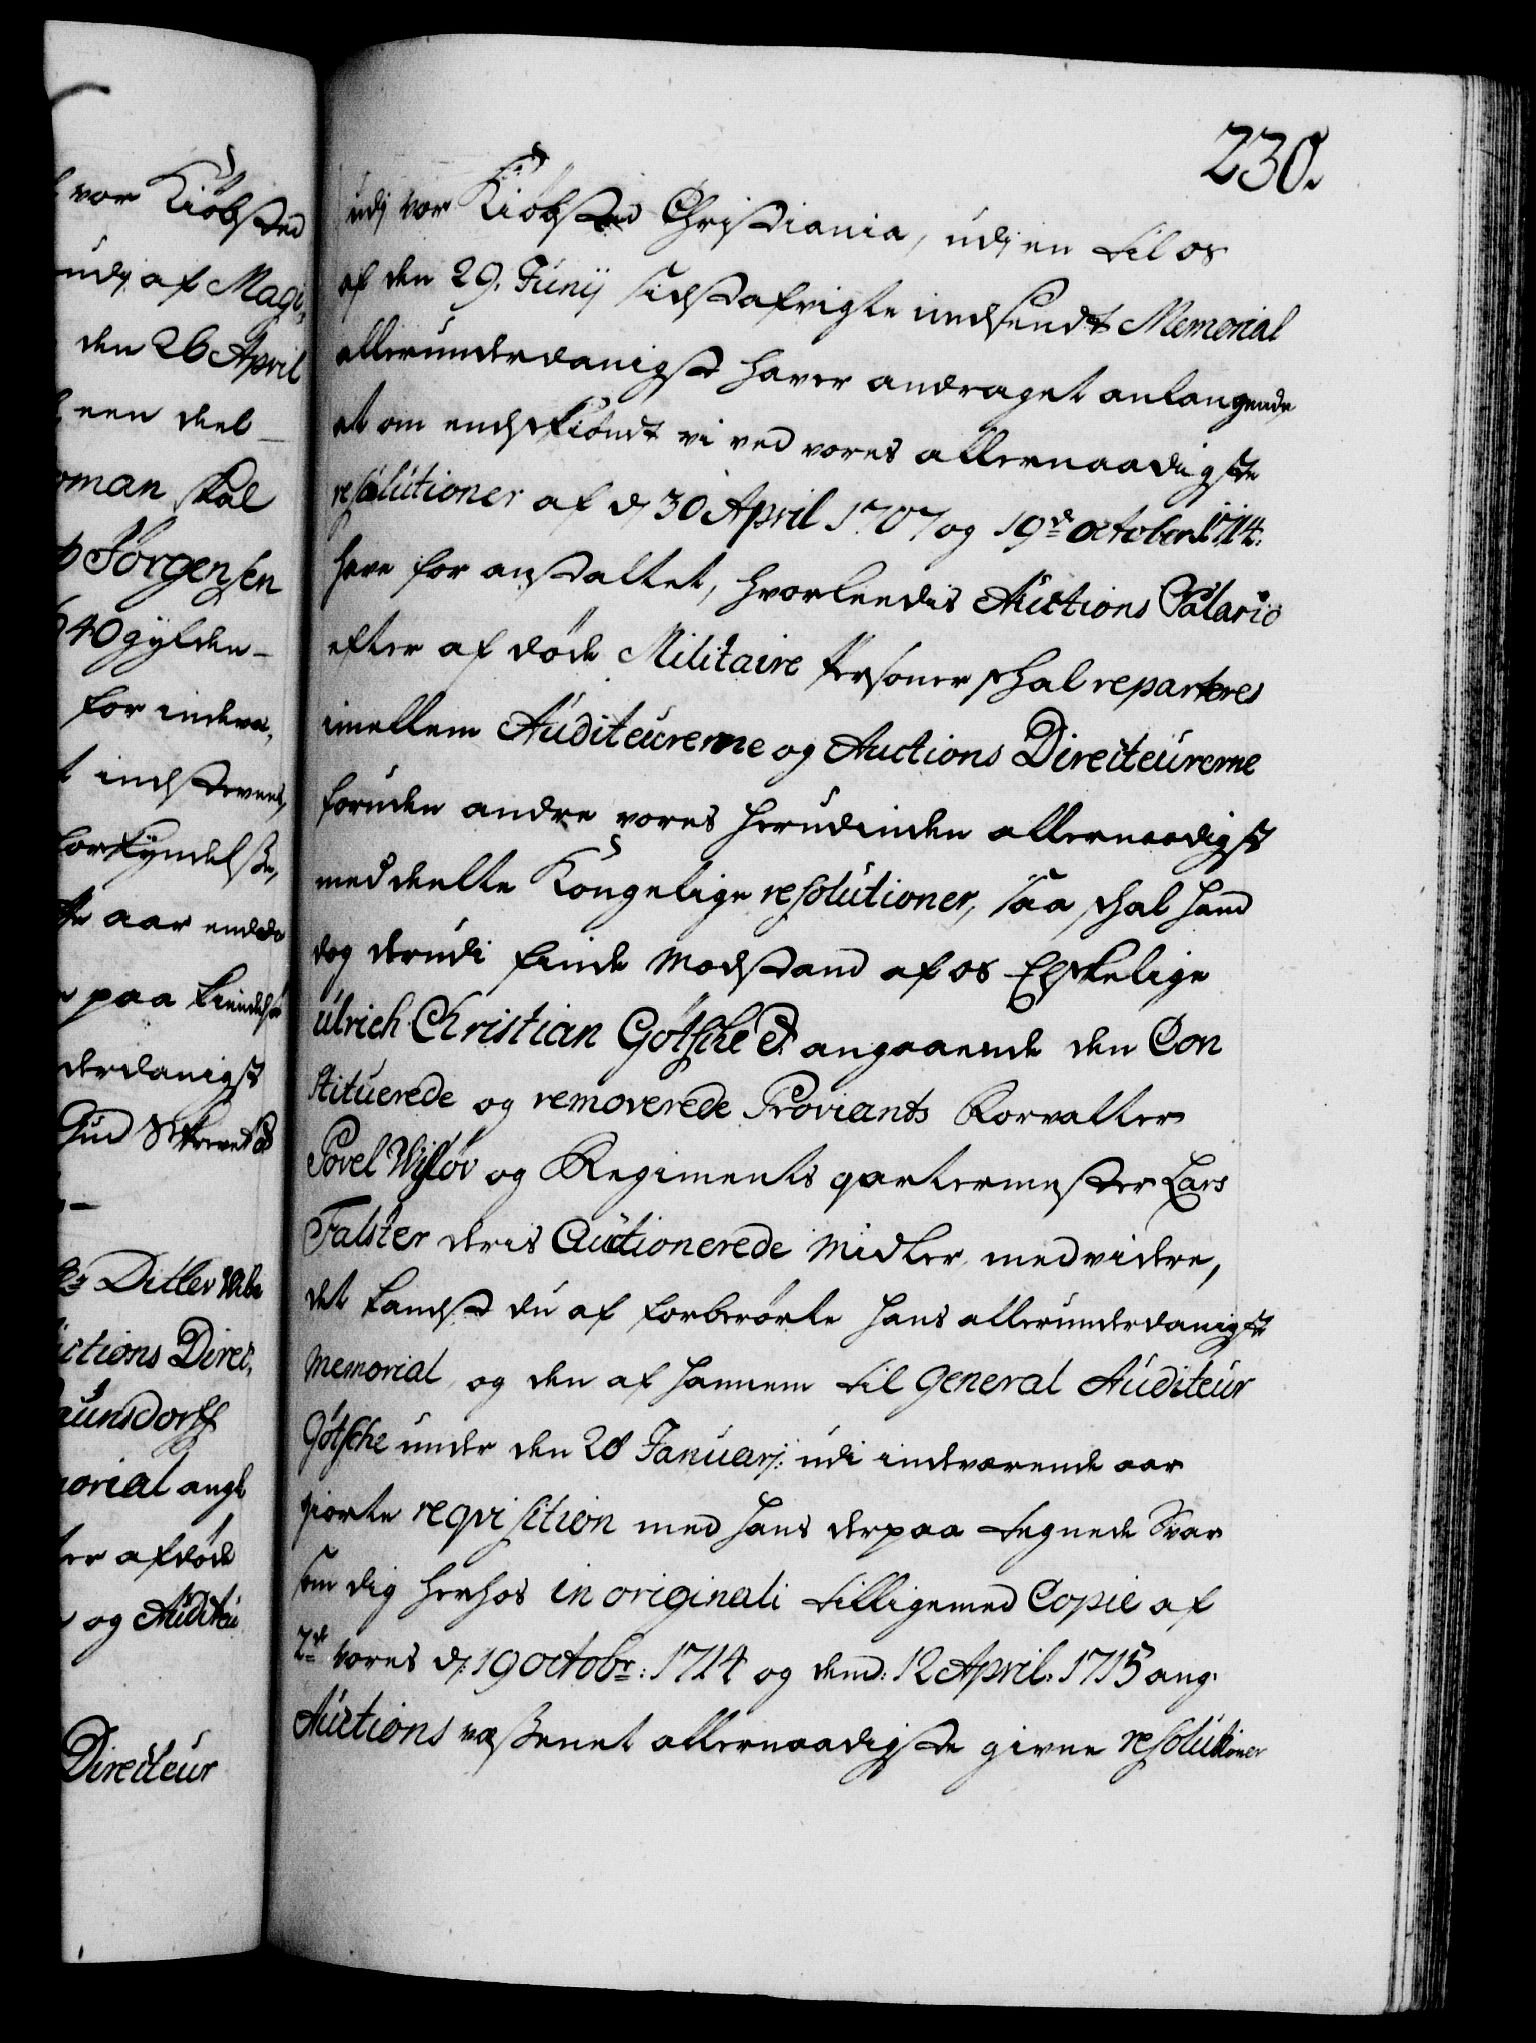 230.
udj vor Kiøbsted Christiania, udj en til os
af den 29. Junij sidstafvigte indsendt Memorial
allerunderdanigst haver andraget anlangende
at om endskiøndt vi ved vores allernaadigste
resolutioner af d 30 April 1707 og 19de october 1714.
have for anstaltet, hvorleedis Auctions Salario
efter afdøde Militaire Personer schal reparteres
imellem Auditeurerne og Auctions Directeurerne
foruden andre vores herudinden allernaadigst
meddeelte Kongelige resolutioner, saa schal hand
dog derudi finde Modstand af os Elskelige
Ulrich Christian Götsche &. angaaende den Con
stituerede og removerede Proviants Forvalter
Povel Wisløv og Regiments qvartermester Lars
Falster deris Auctionerede Midler medvidere,
det kandst du af forberørte hans allerunderdanigste
Memorial og den af hannem til General Auditeur
Götsche under den 28 Januarj: udi indeværende aar
giorte reqvisition med hans derpaa tegnede Svar
som dig herhos in originali tilligemed Copie af
2de vores d: 19 octobr: 1714 og dend: 12 April: 1715 ang:
Auctions væsenet allernaadigste givne resolutioner
vor Kiøbsted
udj af Magi,
den 26 April
een deel
skal
Jørgensen
40 gylden
for indeva,
indstevnes,
forkyndelse,
aar endda
paa
derdanigst
Gud
Ditlev Wibe
Direc,
ang
afdøde
og
Directeur